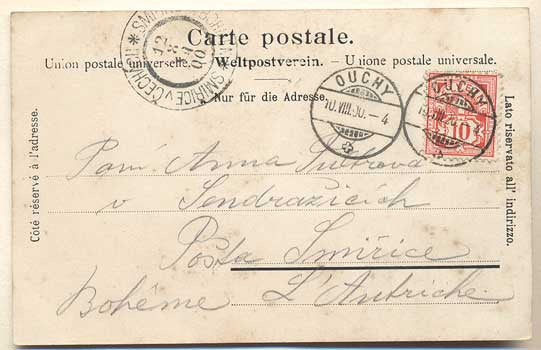 Carte postale.
Union postale universelle. – Weltpostverein. – Unione postale universale.
Nur für die Adresse.
Côté réservé à l'adresse.
Lato riservato all' indirizzo.
SMIŘICE v ČECHÁCH
12
8
00
OUCHY
10.VIII.00.–4
OUCHY
10.VIII.00.–4
10
Paní Anna Šultrova
v Sendražicích
Pošta Smiřice
Bohême L'Autriche